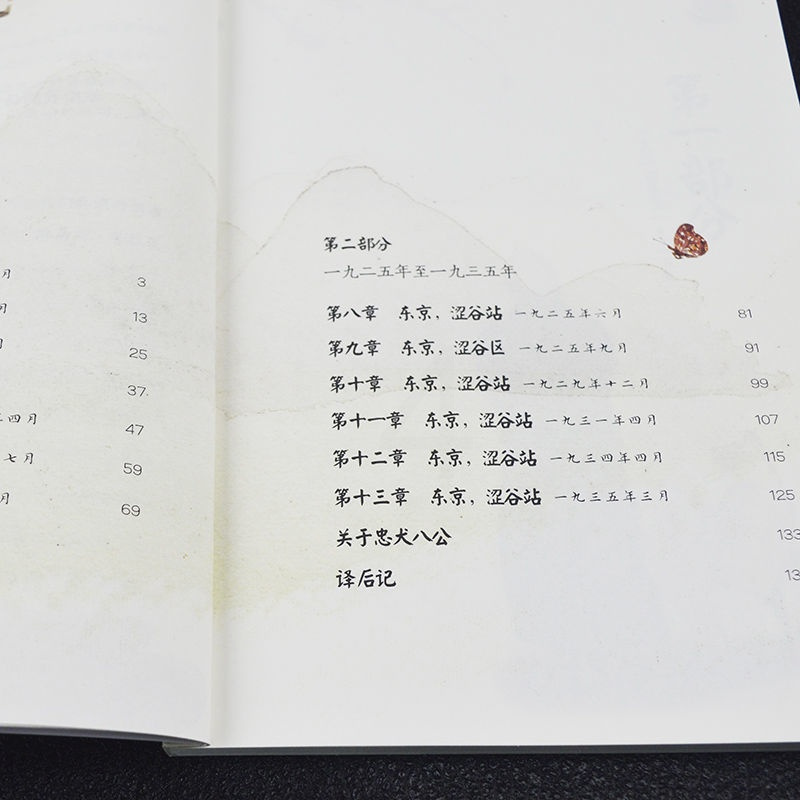 月
3
月
13
月
25
37
年四月
47
七月
59
月
69
第一部分
第二部分
一九二五年至一九三五年
第八章 东京，涩谷站 一九二五年六月 81
第九章 东京，涩谷区 一九二五年九月 91
第十章 东京，涩谷站 一九二九年十二月 99
第十一章 东京，涩谷站 一九三一年四月 107
第十二章 东京，涩谷站 一九三四年四月 115
第十三章 东京，涩谷站 一九三五年三月 125
关于忠犬八公 133
译后记 13